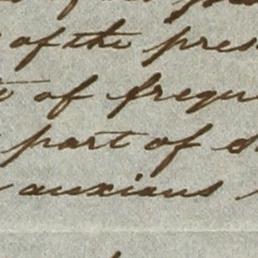 of the pres
of frequ
part of
anxious